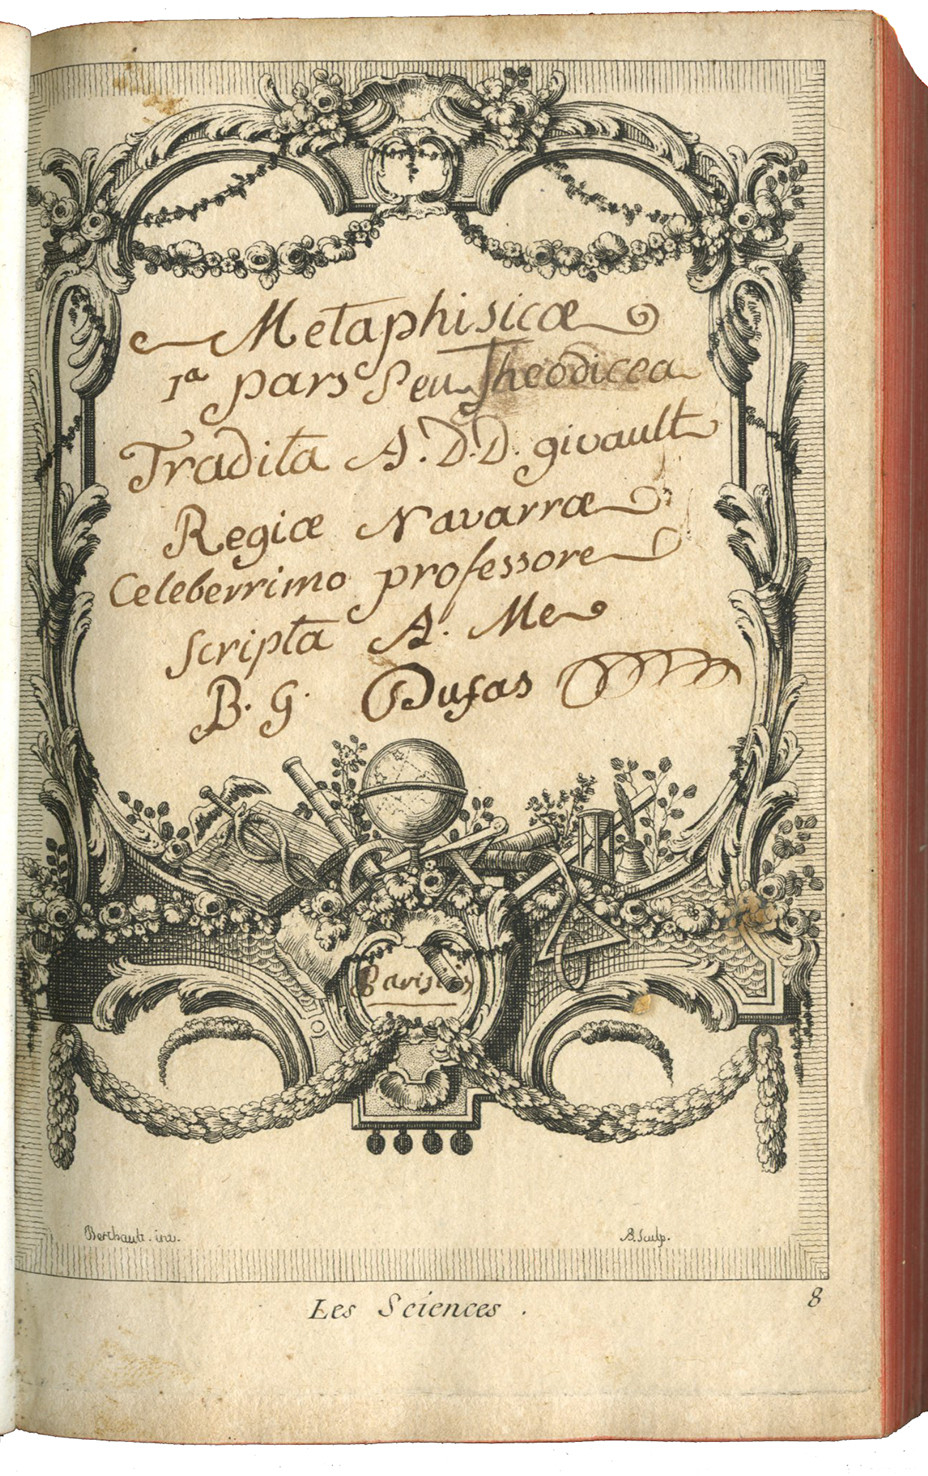 Metaphisicæ
1ª pars Seu Theodicea
Tradita A. D. D. givault
Regiæ Navarræ
Celeberrimo professore
scripta A. Me
B. G. Dufas
Parisiis
Berthault. inv.
B. Sculp.
Les Sciences .
8